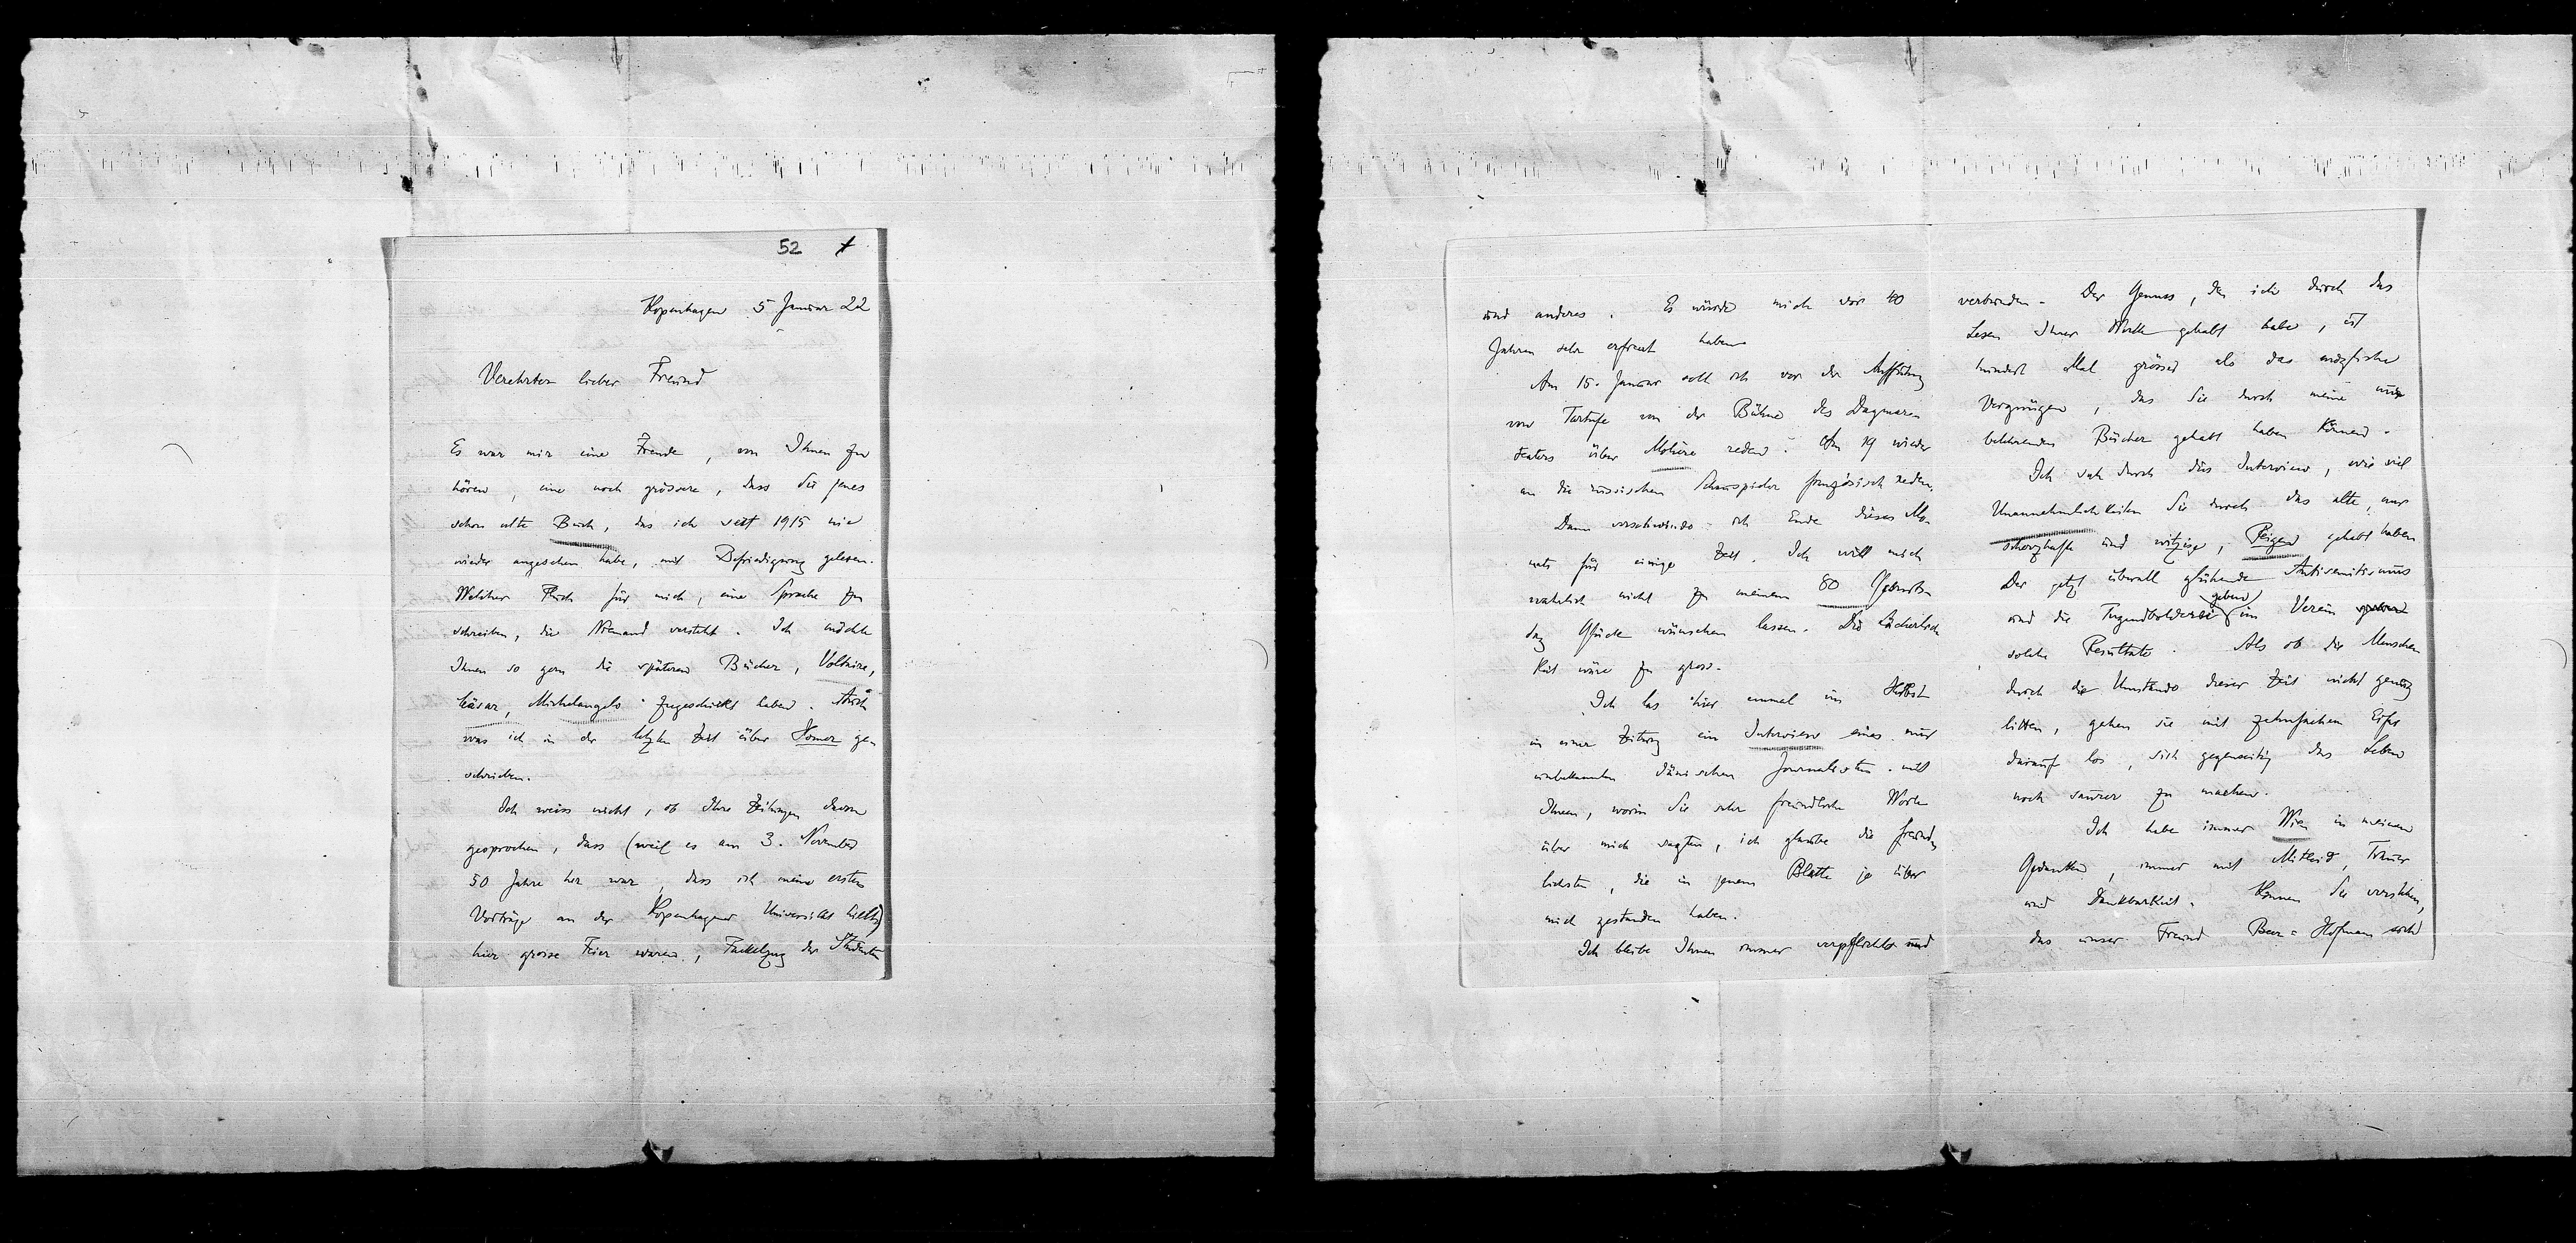 52
Kopenhagen 5 Januar 22
Verehrter lieber Freund
Es war mir eine Freude, von Ihnen zu
hören, eine noch grössere, dass Sie jenes
schon alte Buch, das ich seit 1915 nie
wieder angesehen habe, mit Befriedigung gelesen.
Welcher Fluch für mich, eine Sprache zu
schreiben, die Niemand versteht. Ich möchte
Ihnen so gern die späteren Bücher, Voltaire,
Cäsar, Michelangelo zugeschickt haben. Auch
was ich in der letzten Zeit über Homer ge-
schrieben.
Ich weiss nicht, ob Ihre Zeitungen davon
gesprochen, dass (weil es am 3. November
50 Jahre her war, dass ich meine ersten
Vorträge an der Kopenhagener Universität hielt)
hier grosse Feier waren, Fackelzug der Studenten
und anderes. Es würde mich vor 40
Jahren sehr erfreut haben
Am 15. Januar soll ich vor der Aufführung
von Tartufe von der Bühne des Dagmare-
teaters über Molière reden. Am 19 wieder
an die russischen Schauspieler französisch reden.
Dann verschwinde ich Ende dieses Mo-
nats für einige Zeit. Ich will mich
wahrlich nicht zu meinem 80 Geburts-
tag Glück wünschen lassen. Die Lächerlich-
keit wäre zu gross.
Ich las hier einmal im Herbst
in einer Zeitung ein Interview eines mir
unbekannten dänischen Journalisten mit
Ihnen, worin Sie sehr freundliche Worte
über mich sagten, ich glaube die freund-
lichsten, die in jenem Blatte je über
mich gestanden haben.
Ich bleibe Ihnen immer verpflichtet und
verbunden. Der Genuss, den ich durch das
Lesen Ihrer Werke gehabt habe, ist
hundert Mal grösser als das mögliche
Vergnügen, das Sie durch meine nur
belehrenden Bücher gehabt haben können.
Ich sah durch das Interview, wie viel
Unannehmlichkeiten Sie durch das alte, nur
scherzhafte und witzige, Reigen gehabt haben
Der jetzt überall glühende Antisemitismus
und die Tugendbolderei geben im Verein
solche Resultate. Als ob die Menschen
durch die Umstände dieser Zeit nicht genug
litten, gehen sie mit zehnfachem Eifer
darauf los, sich gegenseitig das Leben
noch saurer zu machen.
Ich habe immer Wien in meinen
Gedanken, immer mit Mitleid, Trauer
und Dankbarkeit. Können Sie verstehen,
das unser Freund Beer-Hofmann sich